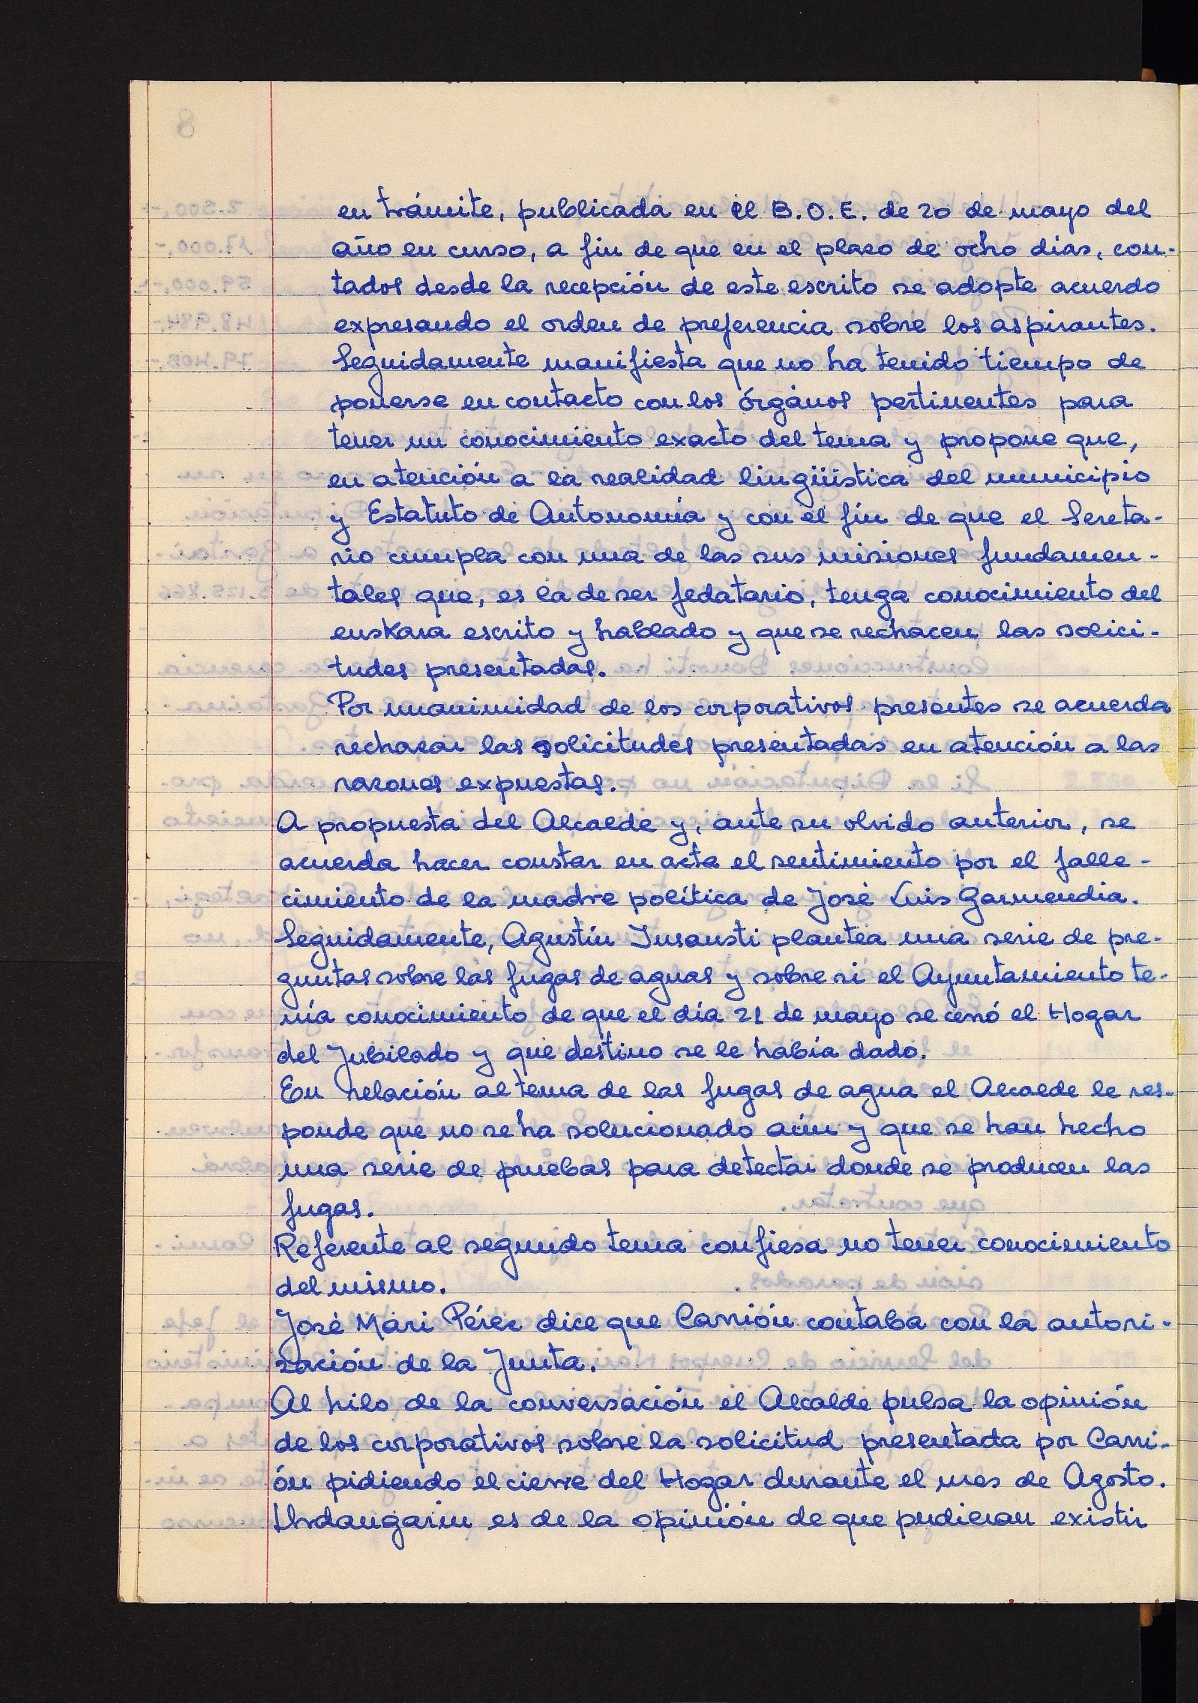 en trámite, publicada en el B.O.E. de 20 de mayo del
año en curso, a fin de que en el plazo de ocho dias, con-
tados desde la recepción de este escrito se adopte acuerdo
expresando el orden de preferencia sobre los aspirantes.
Seguidamente manifiesta que no ha tenido tiempo de
ponerse en contacto con los órganos pertinentes para
tener un conocimiento exacto del tema y propone que,
en atención a la realidad lingüistica del municipio
y Estatuto de Autonomía y con el fin de que el Sereta-
rio cumpla con una de las sus misiones fundamen-
tales que, es la de ser fedatario, tenga conocimiento del
euskara escrito y hablado y que se rechacen las solici-
tudes presentadas.
Por unanimidad de los corporativos presentes se acuerda
rechazar las solicitudes presentadas en atención a las
razones expuestas.
A propuesta del Alcalde y, ante su olvido anterior, se
acuerda hacer constar en acta el sentimiento por el falle-
cimiento de la madre política de José Luis Garmendia.
Seguidamente, Agustín Insausti plantea una serie de pre-
guntas sobre las fugas de aguas y sobre si el Ayuntamiento te-
nía conocimiento de que el día 21 de mayo se cerró el Hogar
del Jubilado y que destino se le había dado.
En relación al tema de las fugas de agua el Alcalde le res-
ponde que no se ha solucionado aún y que se han hecho
una serie de pruebas para detectar donde se producen las
fugas.
Referente al segundo tema confiesa no tener conocimiento
del mismo.
José Mari Pérez dice que Carrión contaba con la autori-
zación de la Junta.
Al hilo de la conversación el Alcalde pulsa la opinión
de los corporativos sobre la solicitud presentada por Carri-
ón pidiendo el cierre del Hogar durante el mes de Agosto.
Urdangarin es de la opinión de que pudieran existir